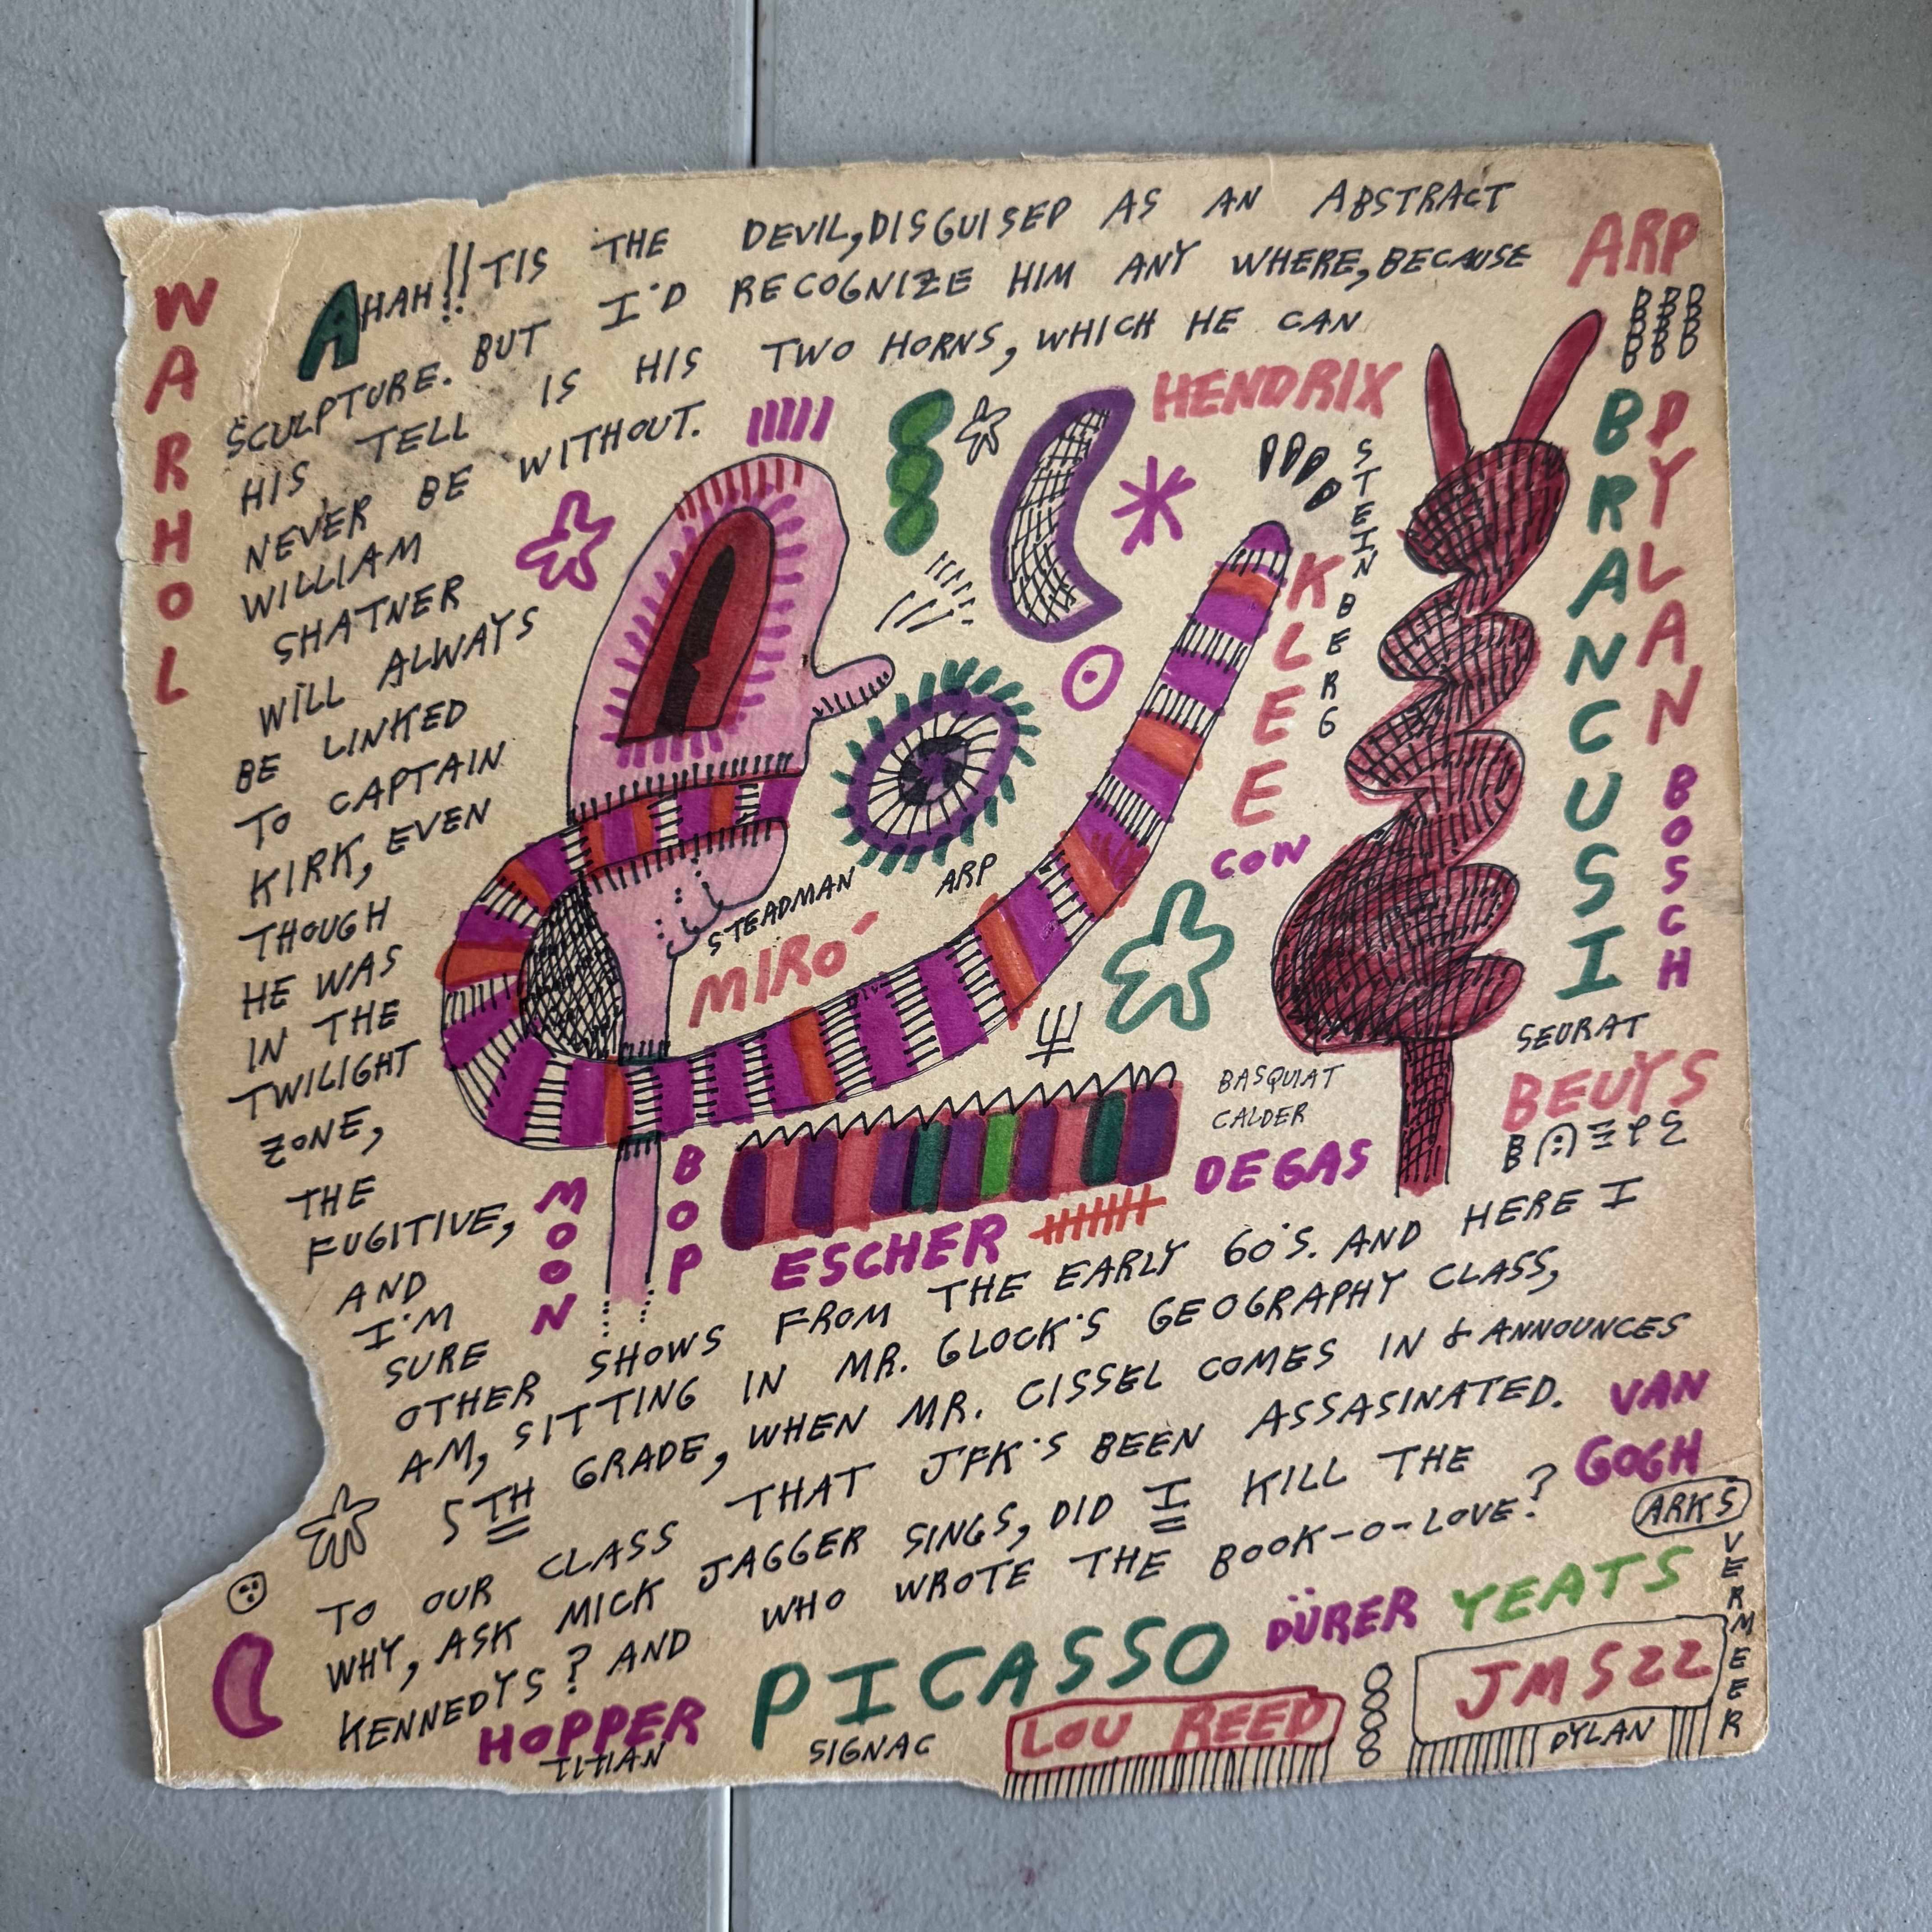 AHAH!! TIS THE DEVIL, DISGUISED AS AN ABSTRACT
SCULPTURE. BUT I'D RECOGNIZE HIM ANY WHERE, BECAUSE
HIS TELL IS HIS TWO HORNS, WHICH HE CAN
NEVER BE WITHOUT.
WILLIAM
SHATNER
WILL ALWAYS
BE LINKED
TO CAPTAIN
KIRK, EVEN
THOUGH
HE WAS
IN THE
TWILIGHT
ZONE,
THE
FUGITIVE,
AND
I'M
SURE
OTHER SHOWS FROM THE EARLY 60'S. AND HERE I
AM, SITTING IN MR. GLOCK'S GEOGRAPHY CLASS,
5TH GRADE, WHEN MR. CISSEL COMES IN & ANNOUNCES
TO OUR CLASS THAT JFK'S BEEN ASSASINATED.
WHY, ASK MICK JAGGER SINGS, DID I KILL THE
KENNEDYS? AND WHO WROTE THE BOOK-O-LOVE?
WARHOL
ARP
BBB
BBB
BBB
BBB
HENDRIX
STEINBERG
KLEE
CON
BRANCUSI
DYLAN
BOSCH
STEADMAN
ARP
MIRÓ
SEURAT
BEUYS
BASQUIAT
CALDER
DEGAS
MOON
BOP
ESCHER
VAN
GOGH
ARKS
VERMEER
YEATS
DÜRER
PICASSO
HOPPER
TITIAN
SIGNAC
LOU REED
JMS22
DYLAN